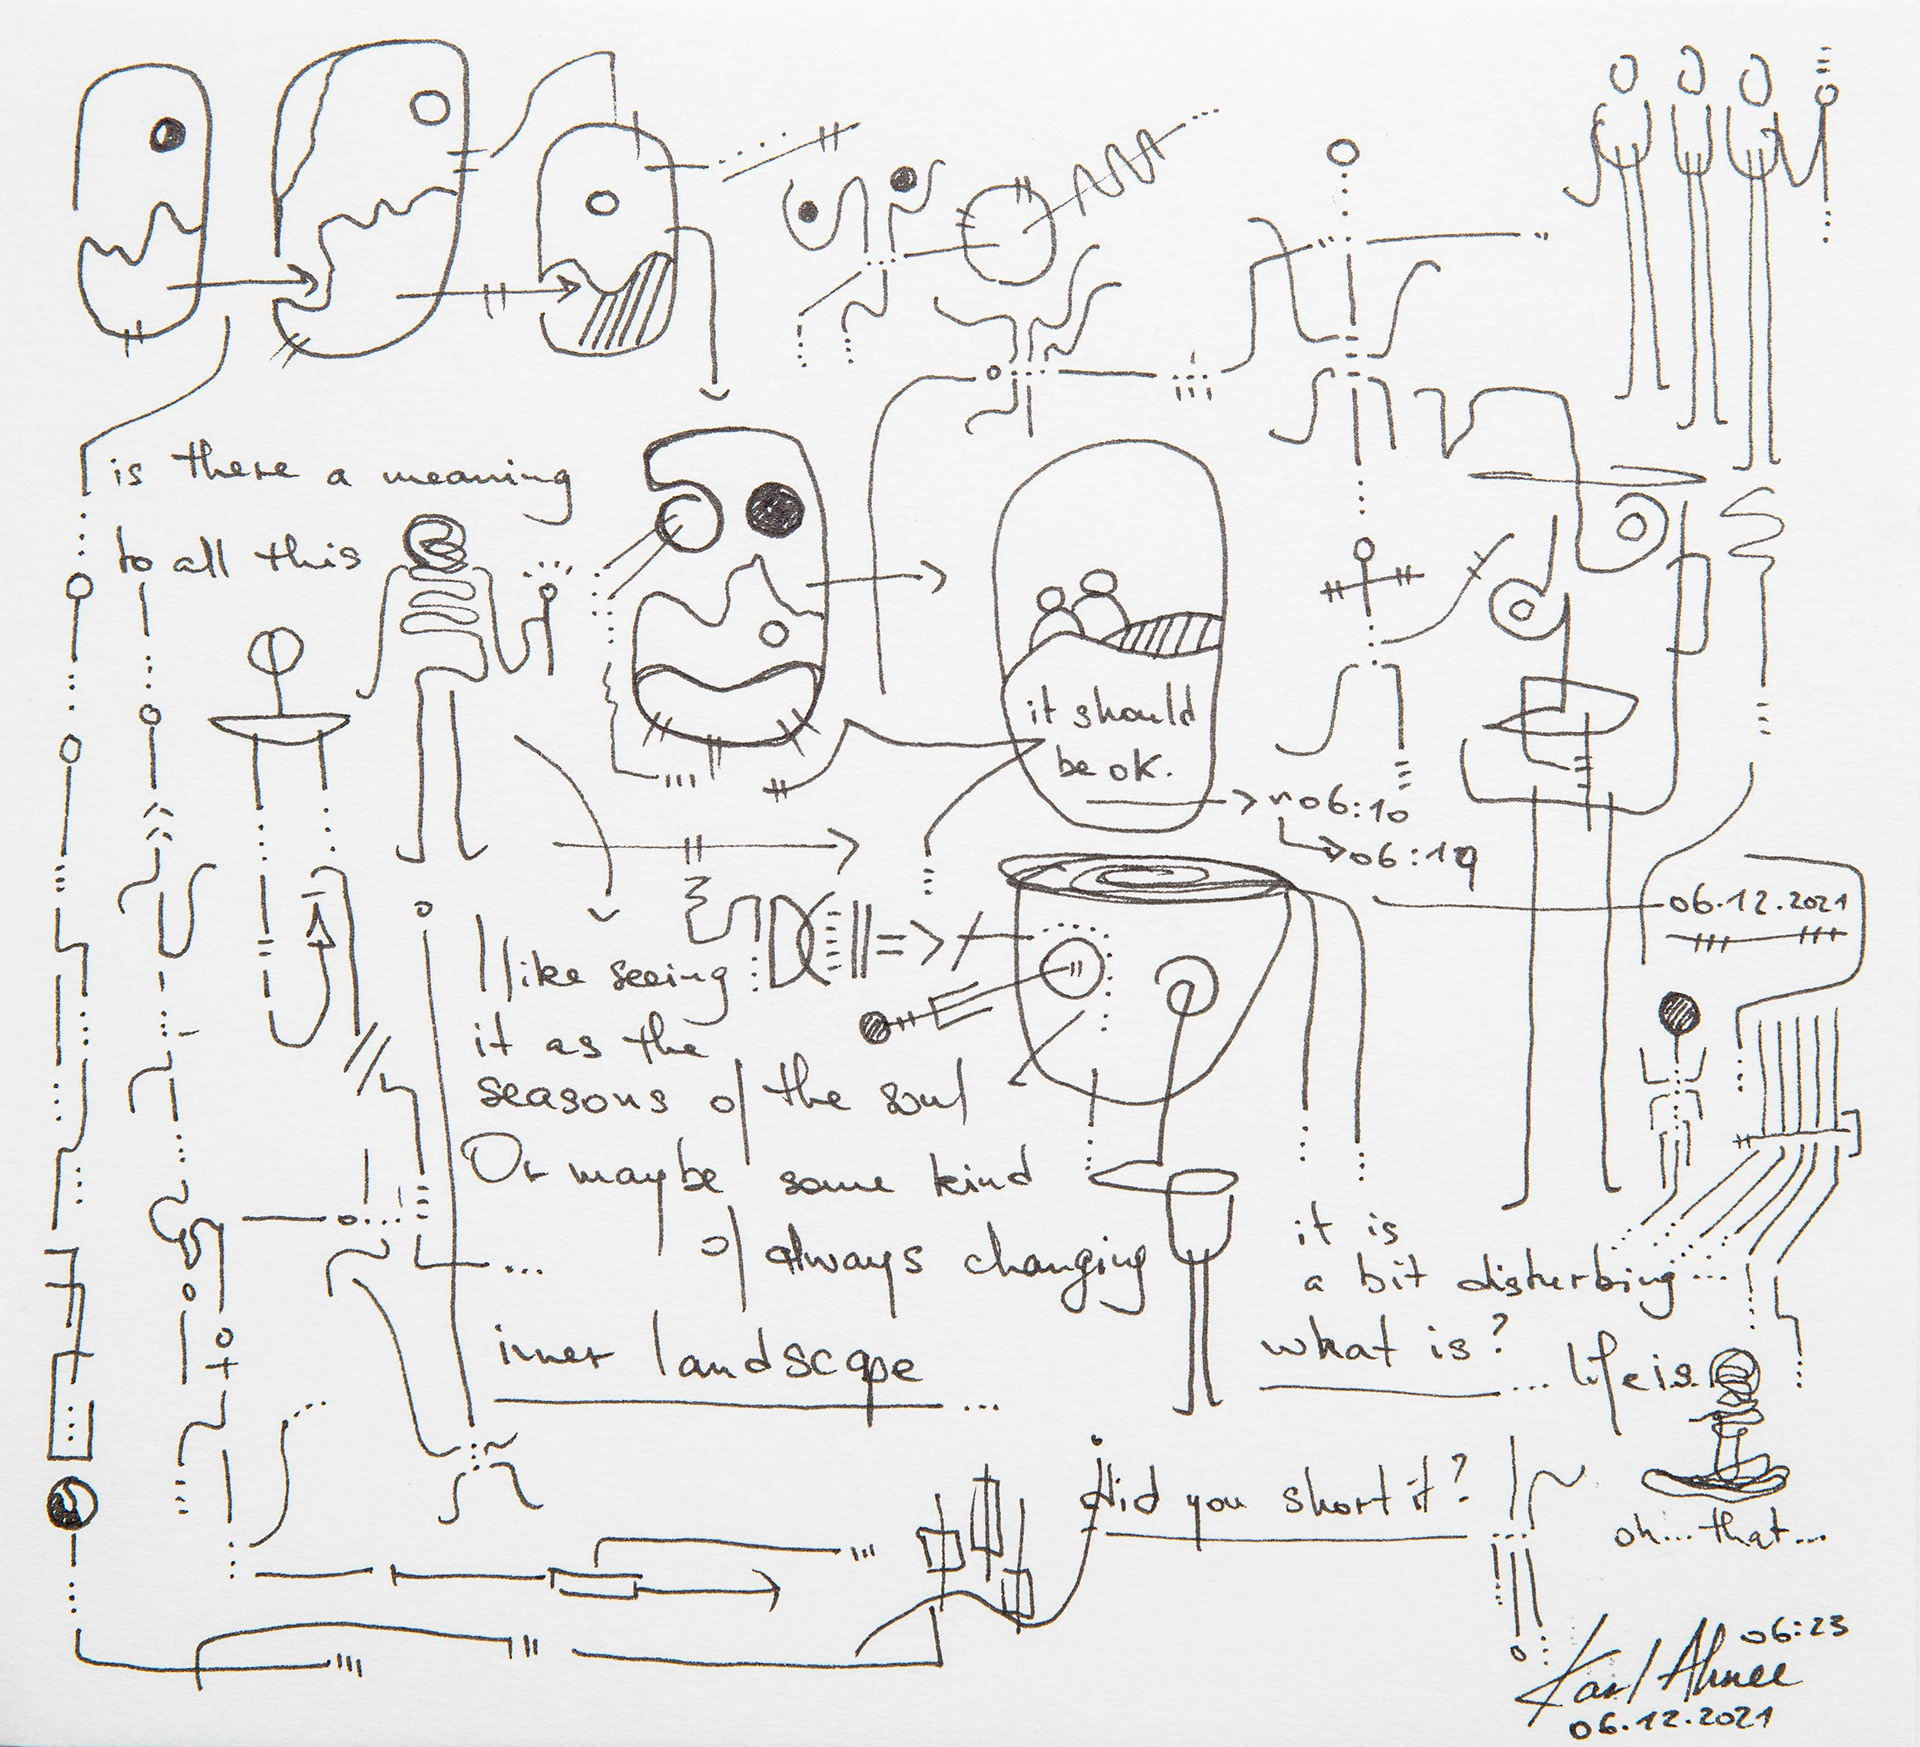 is there a meaning
to all this
it should
be ok.
06:10
06:19
06.12.2021
I like seeing
it as the
seasons of the soul
Or maybe some kind
of always changing
inner landscape
...
it is
a bit disturbing...
what is?
... life is
oh...that...
did you short it?
06:23
Karl Ahnee
06.12.2021